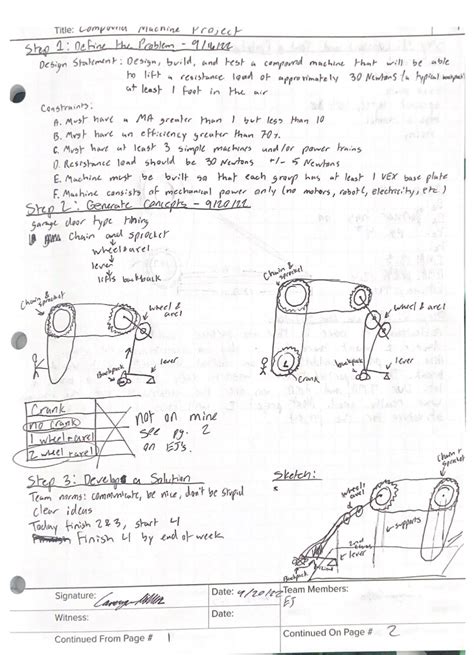 Title: Compound Machine Project
Step 1: Define the Problem - 9/16/22
Design Statement: Design, build, and test a compound machine that will be able
to lift a resistance load of approximately 30 Newtons (a typical backpack)
at least 1 foot in the air
Constraints:
A. Must have a MA greater than 1 but less than 10
B. Must have an efficiency greater than 7%.
C. Must have at least 3 simple machines and/or power trains
D. Resistance load should be 30 Newtons +/- 5 Newtons
E. Machine must be built so that each group has at least 1 VEX base plate
F. Machine consists of mechanical power only (no motors, robots, electricity, etc.)
Step 2: Generate Concepts - 9/20/22
garage door type thing
Chain and sprocket
wheel & axel
lever
lifts backpack
chain & sprocket
wheel & axel
lever
Backpack
Chain & sprocket
wheel & axel
lever
Backpack
Crank
Crank
no crank
1 wheel + axel
2 wheel + axel
not on mine
see pg. 2
on EJ's
Step 3: Develop a Solution
Team norms: communicate, be nice, don't be stupid
clear ideas
Today finish 2 & 3, start 4
Finish 4 by end of week
Sketch:
chain + sprocket
wheel + axel
supports
2nd class lever
Backpack
Signature:
Date: 9/20/22
Team Members:
EJ
Witness:
Date:
Continued From Page # 1
Continued On Page # 2